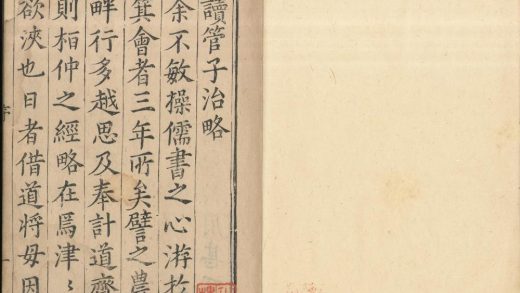 讀管子治略
余不敏操儒書之心游於
箕會者三年所矣譬之農
畔行多越思及奉計道齊
則栢仲之經略在焉津〻
欲浹也日者借道將毋因
序